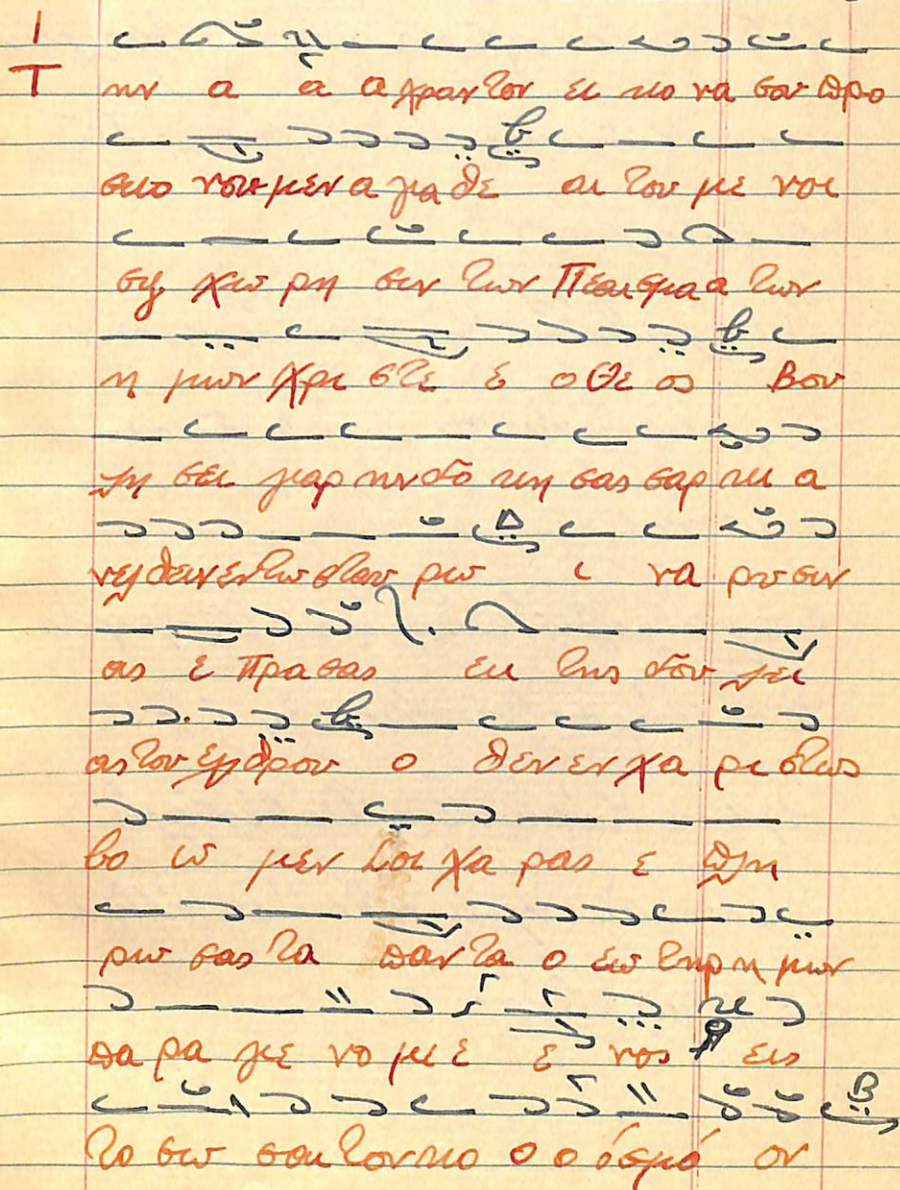 Την α α α χραντον ει κο να σου προ
σκυ νου μεν α γα θε αι του με νοι
συγ χω ρη σιν των Πται σμα α των
η μων Χρι στε ε ο Θε ος Βου
λη σει γαρ ην δο κη σας σαρ κι α
νελ θειν εν τω σταυ ρω ι να ρυ σιν
ας ε πλα σας εκ της δου λει
ας του εχ θρου ο θεν εν χα ρι στως
βο ω μεν Σοι χα ρας ε πλη
ρω σας τα παν τα ο Σω τηρ η μων
πα ρα γε νο με ε ε νος εις
το σω σαι τον κο ο ο σμο ον